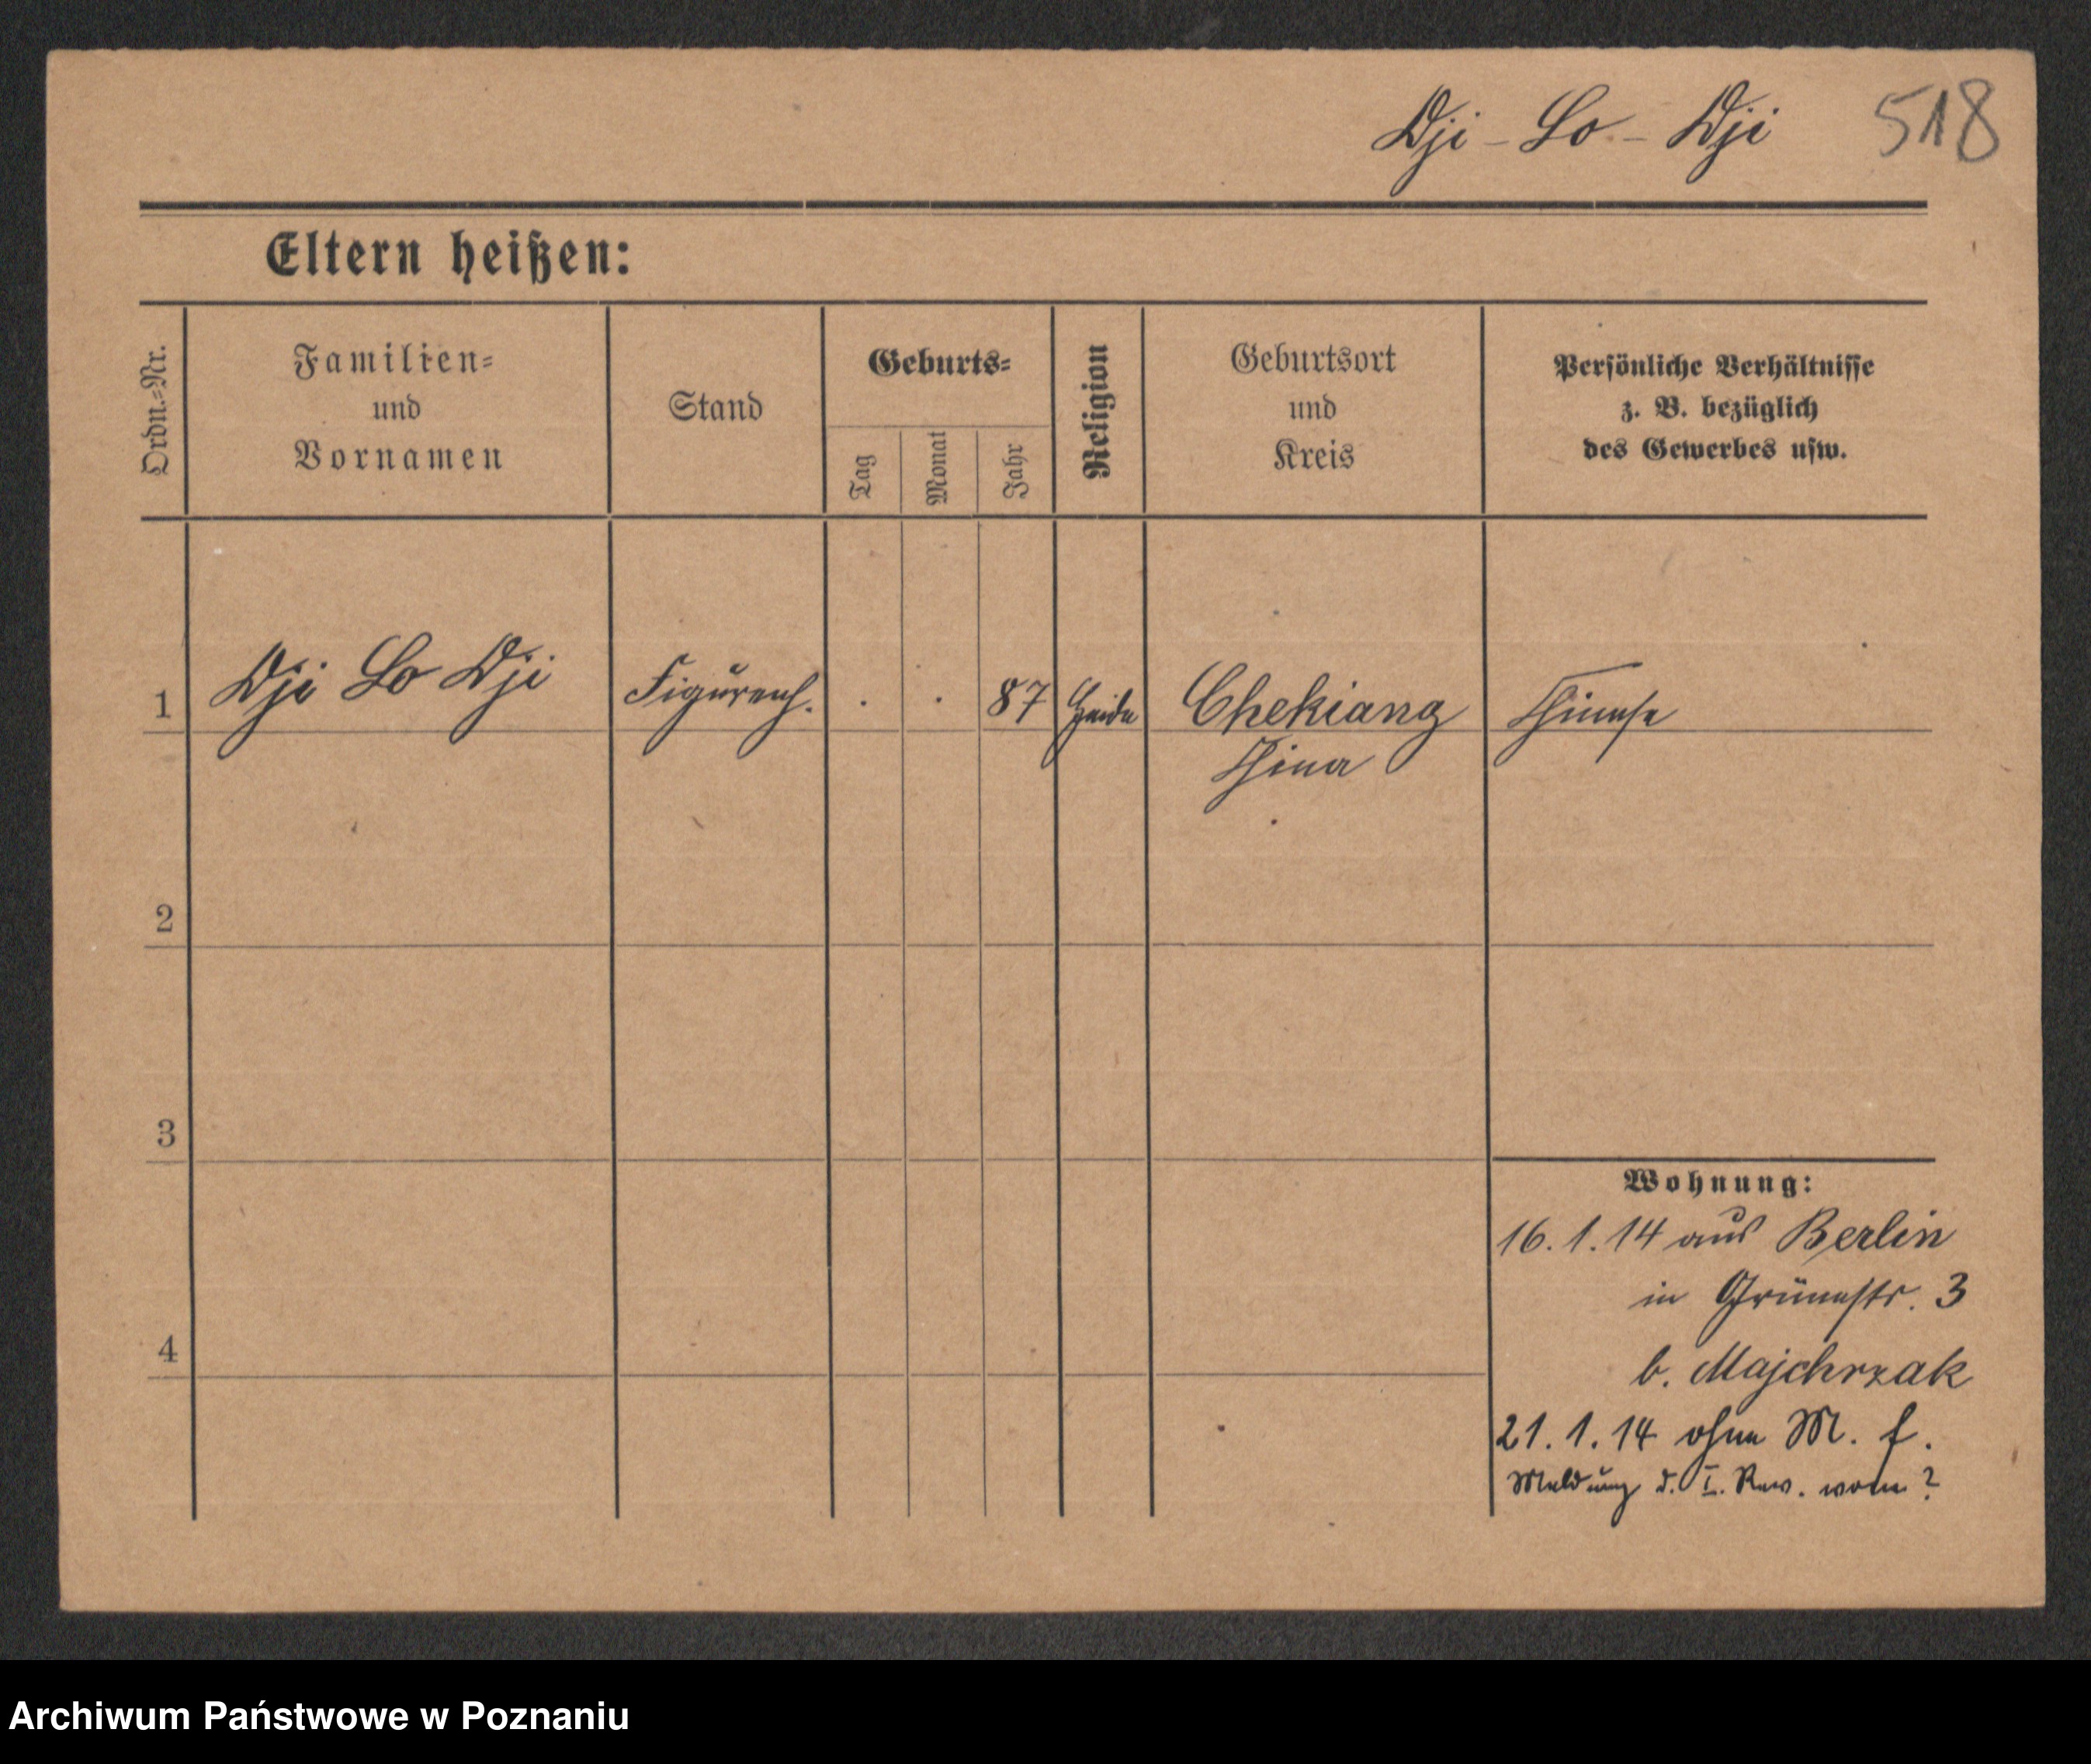 Dji-Lo-Dji 518
Eltern heißen:
Ordn.-Nr.
Familien=
und
Vornamen
Stand
Geburts=
Tag
Monat
Jahr
Religion
Geburtsort
und
Kreis
Persönliche Verhältnisse
z. B. bezüglich
des Gewerbes usw.
1 Dji Lo Dji Figurenh. . . 87 Heide Chekiang Chinese
China
2
3
4
Wohnung:
16.1.14 aus Berlin
in Grünestr. 3
b. Majchrzak
21.1.14 ohne M. f.
Meldung d. I. Rev. vom ?
Archiwum Państwowe w Poznaniu